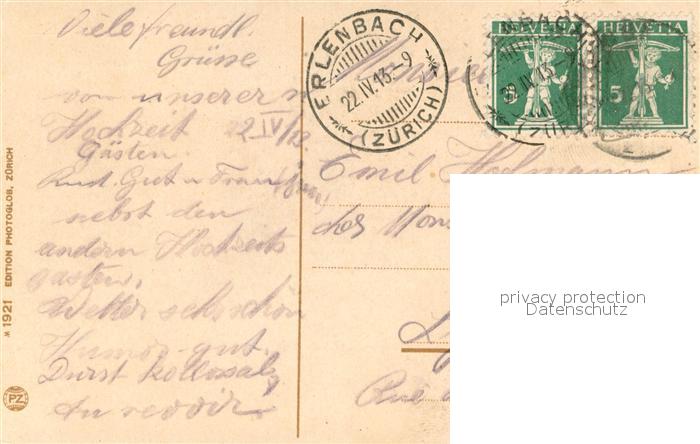 Viele freundl.
Grüsse
von unserer
Hochzeit 22 IV/13
Gästen.
Rud. Gut u Frau
nebst den
andern Hochzeits
gästen.
Wetter sehr schön
Humor gut.
Durst kollosal,
Au revoir
№ 1921 EDITION PHOTOGLOB, ZÜRICH
PZ
ERLENBACH
22.IV.13-9
(ZÜRICH)
HELVETIA
HELVETIA
5
Monsieur
Emil Hofmann
chez Mons
Rue
privacy protection
Datenschutz